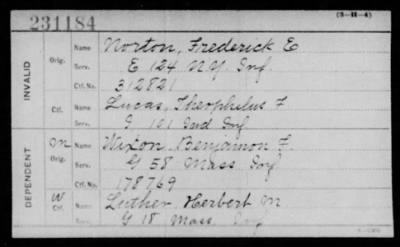 231184 (3-H-4)
INVALID
Orig. Name Norton, Frederick E
Serv. E 124 N.Y. Inf.
Ctf. No. 312821
Ctf. Name Lucas, Theophilus F
Serv. G 101 Ind Inf
DEPENDENT
M Orig. Name Wixon, Benjamin F.
Serv. G 58 Mass. Inf
Ctf. No. 178769
W Ctf. Name Luther, Herbert M
Serv. G 18 Mass. Inf